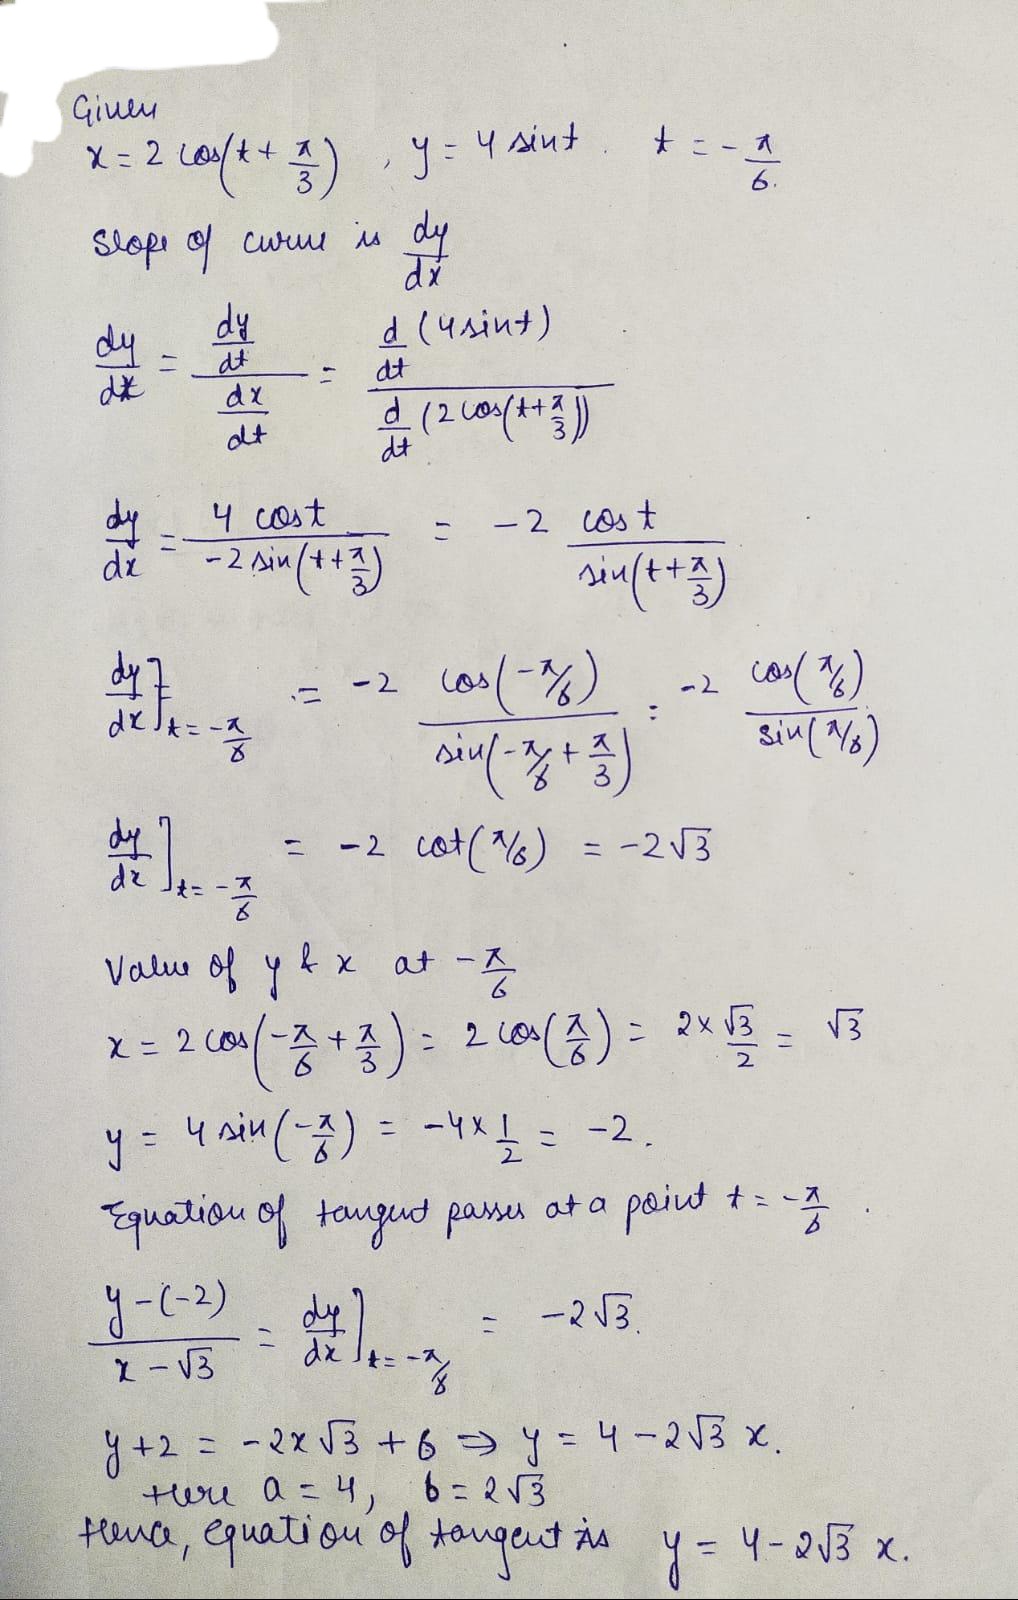 Given
x = 2 cos(t + π/3) , y = 4 sint . t = - π/6.
Slope of curve is dy/dx
dy/dx = (dy/dt)/(dx/dt) = (d/dt (4 sint))/(d/dt (2 cos(t + π/3)))
dy/dx = 4 cost/(-2 sin(t + π/3)) = -2 cost/sin(t + π/3)
dy/dx]t = -π/6 = -2 cos(-π/6)/sin(-π/6 + π/3) = -2 cos(π/6)/sin(π/6)
dy/dx]t = -π/6 = -2 cot(π/6) = -2√3
Value of y & x at -π/6
x = 2 cos(-π/6 + π/3) = 2 cos(π/6) = 2 × √3/2 = √3
y = 4 sin(-π/6) = -4 × 1/2 = -2.
Equation of tangent passes at a point t = -π/6 .
(y - (-2))/(x - √3) = dy/dx]t = -π/6 = -2√3.
y + 2 = -2x√3 + 6 ⇒ y = 4 - 2√3 x.
Here a = 4, b = 2√3
Hence, equation of tangent is y = 4 - 2√3 x.